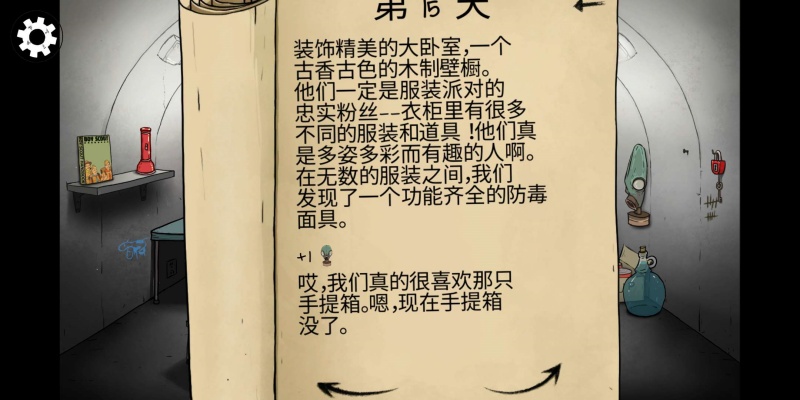 第 15 天
装饰精美的大卧室,一个
古香古色的木制壁橱。
他们一定是服装派对的
忠实粉丝--衣柜里有很多
不同的服装和道具!他们真
是多姿多彩而有趣的人啊。
在无数的服装之间,我们
发现了一个功能齐全的防毒
面具。
+1
哎,我们真的很喜欢那只
手提箱。嗯,现在手提箱
没了。
BOY SCOUT